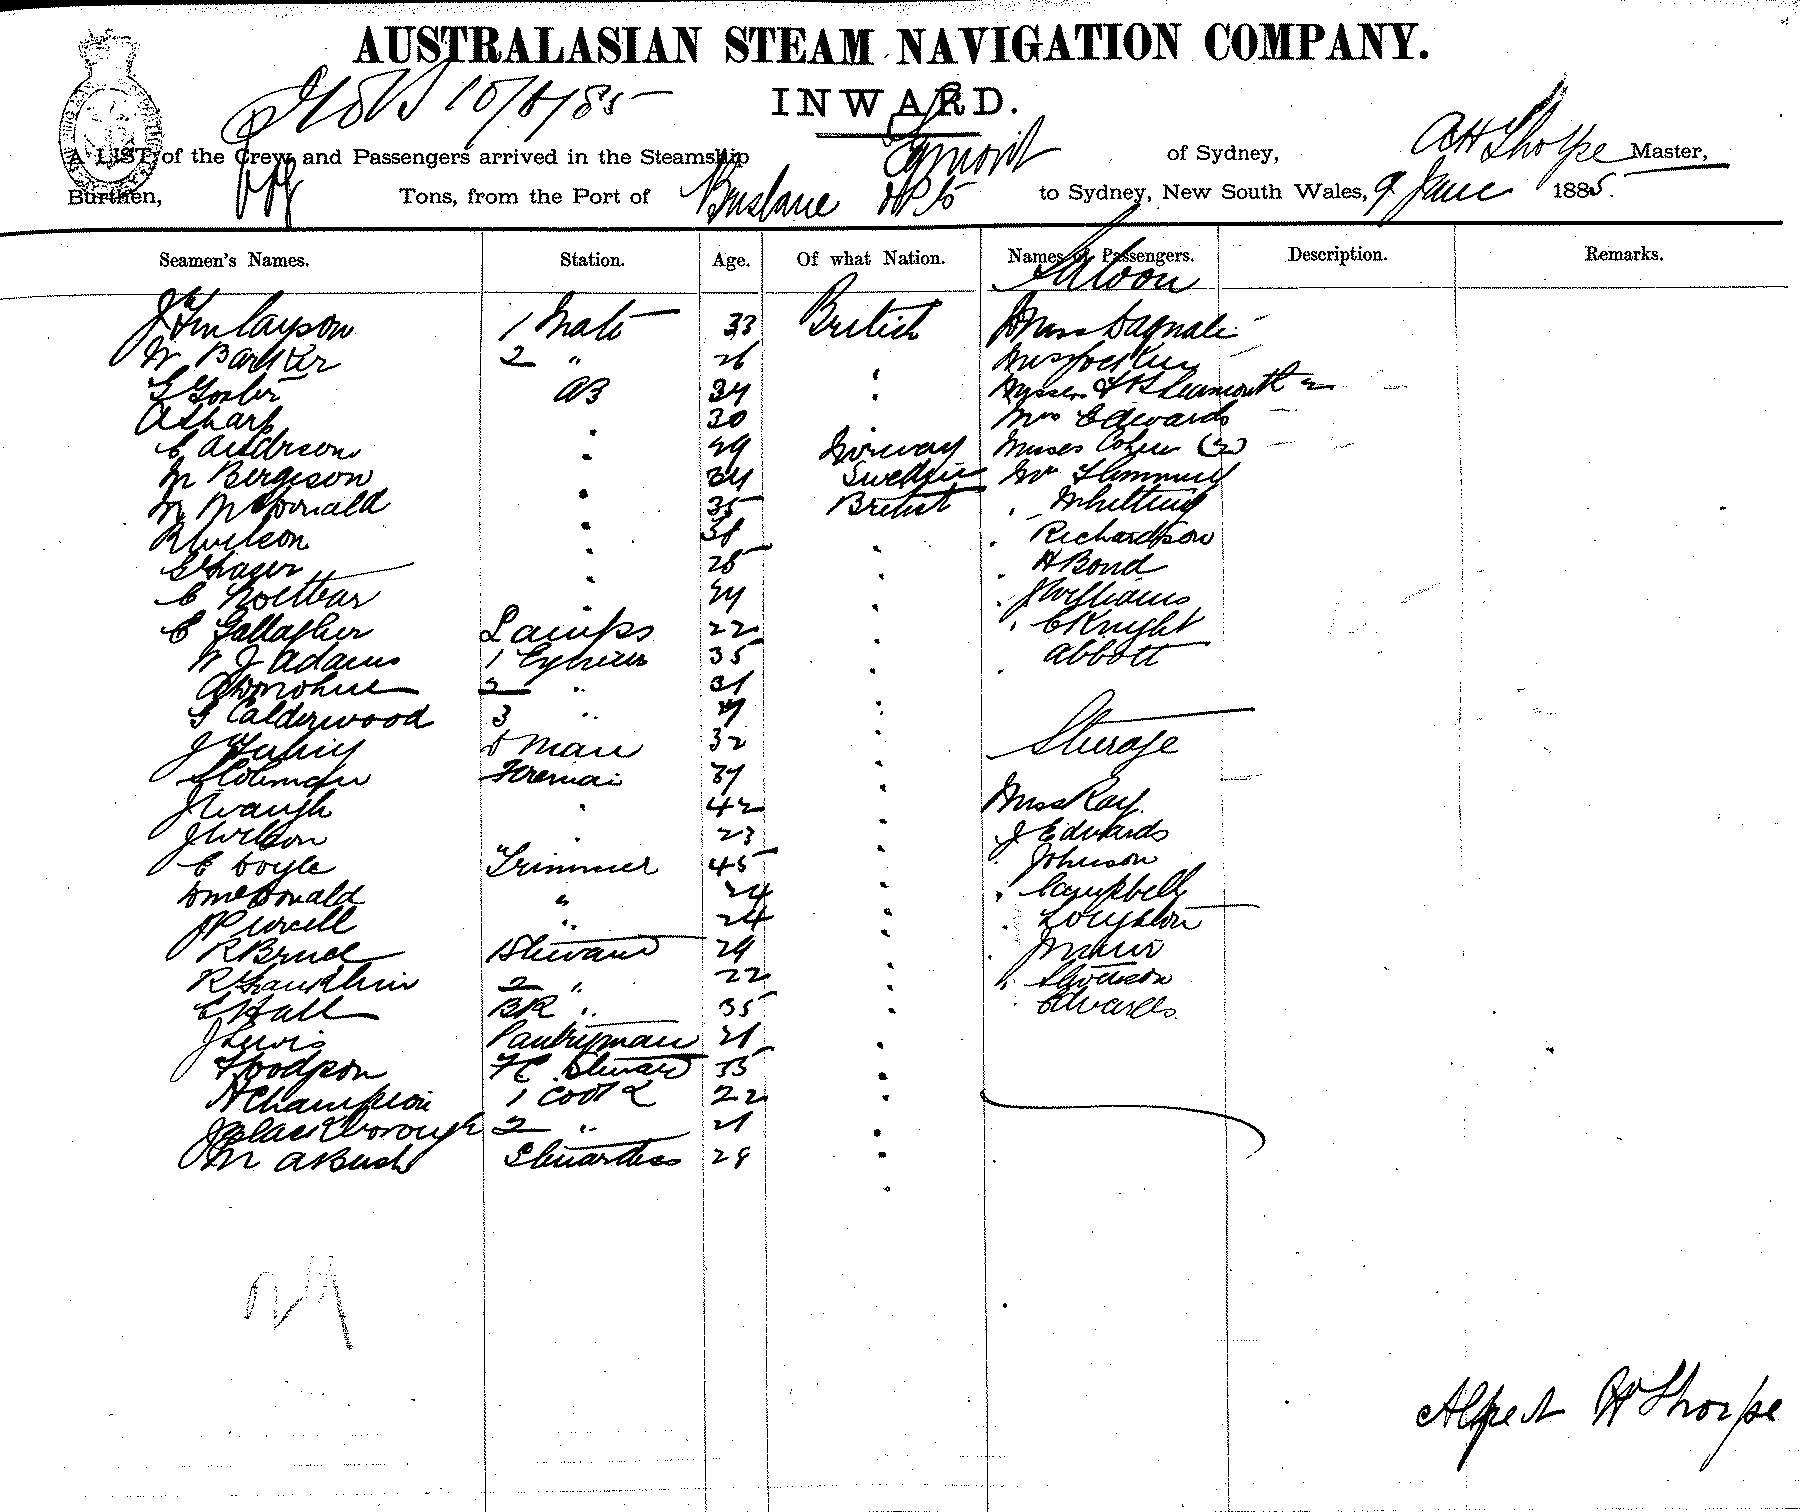 AUSTRALASIAN STEAM NAVIGATION COMPANY.
INWARD.
A LIST of the Crew and Passengers arrived in the Steamship Egmont of Sydney, AH Thorpe Master,
Burthen, Tons, from the Port of Brisbane to Sydney, New South Wales, 9 June 1885.
Seamen's Names. Station. Age. Of what Nation. Names of Passengers. Description. Remarks.
Saloon
J Finlayson 1 Mate 33 British
W Barker 2 " 26
AB
A Sharp 30 Mrs Edwards
C Anderson 29 Norway Misses Cohen (2)
M Bergeson Sweden Mr
M McDonald 35 British " Whitting
R Wilson " Richardson
G Fraser 25 " H Bond
C " J Williams
C Gallagher Lamps 22 " C Knight
W J Adams 1 Engineer 35 " Abbott
A Donohue 2 "
G Calderwood 3 "
J 32 Steerage
S Coleman Fireman
J Waugh " 42 Miss Ray
J Wilson " 23 J Edwards
C Doyle Trimmer 45 " Johnson
D McDonald " 24 " Campbell
J Purcell " 24
R Bruce Steward 29
R Franklin 2 " 22
C Hall BR " 35 " Edwards
J Lewis Pantryman 21
Hodgson FC Steward 35
H Champion 1 Cook 22
J Blackborough 2 " 21
M A Bush Stewardess 28
Alfred H Thorpe